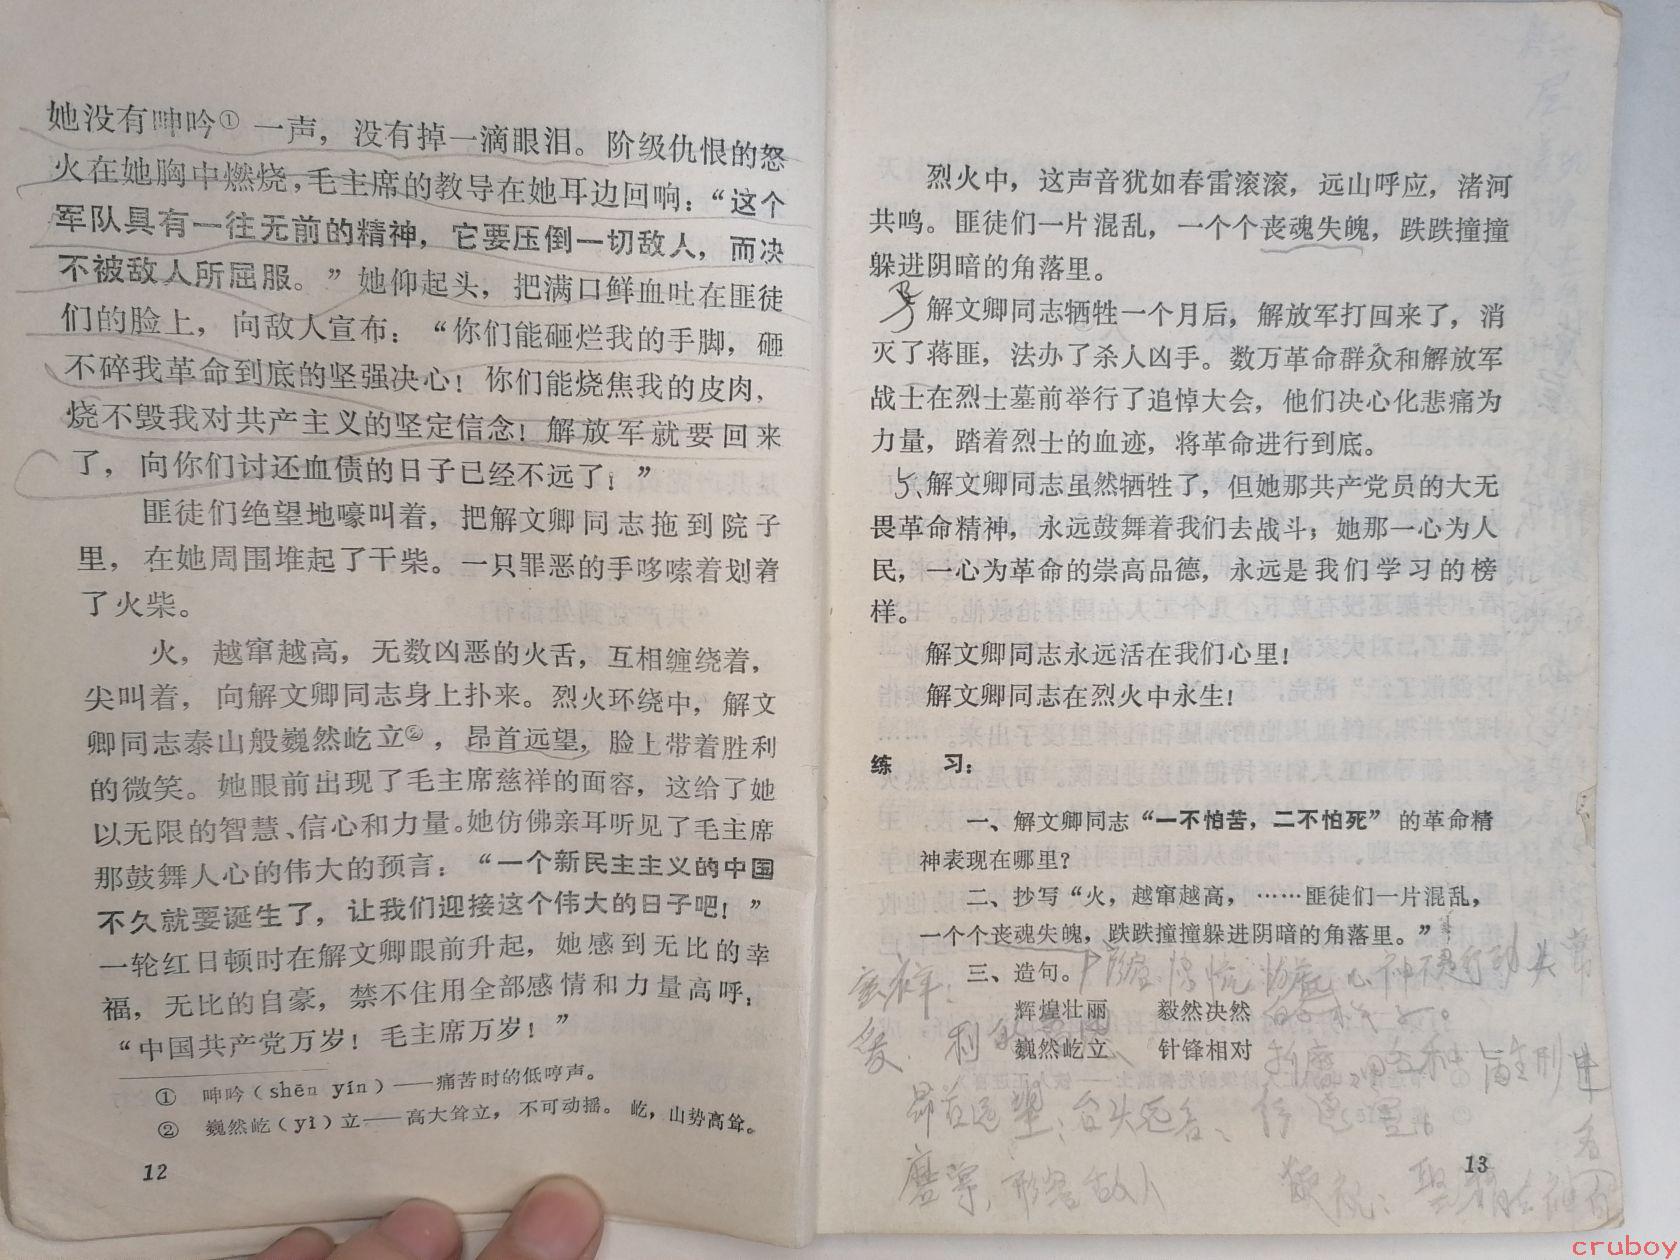 她没有呻吟① 一声，没有掉一滴眼泪。阶级仇恨的怒
火在她胸中燃烧，毛主席的教导在她耳边回响：“这个
军队具有一往无前的精神，它要压倒一切敌人，而决
不被敌人所屈服。”她仰起头，把满口鲜血吐在匪徒
们的脸上，向敌人宣布：“你们能砸烂我的手脚，砸
不碎我革命到底的坚强决心！你们能烧焦我的皮肉，
烧不毁我对共产主义的坚定信念！解放军就要回来
了，向你们讨还血债的日子已经不远了！”
匪徒们绝望地嚎叫着，把解文卿同志拖到院子
里，在她周围堆起了干柴。一只罪恶的手哆嗦着划着
了火柴。
火，越窜越高，无数凶恶的火舌，互相缠绕着，
尖叫着，向解文卿同志身上扑来。烈火环绕中，解文
卿同志泰山般巍然屹立②，昂首远望，脸上带着胜利
的微笑。她眼前出现了毛主席慈祥的面容，这给了她
以无限的智慧、信心和力量。她仿佛亲耳听见了毛主席
那鼓舞人心的伟大的预言：“一个新民主主义的中国
不久就要诞生了，让我们迎接这个伟大的日子吧！”
一轮红日顿时在解文卿眼前升起，她感到无比的幸
福，无比的自豪，禁不住用全部感情和力量高呼：
“中国共产党万岁！毛主席万岁！”
① 呻吟（shēn yín）——痛苦时的低哼声。
② 巍然屹（yì）立——高大耸立，不可动摇。屹，山势高耸。
12
烈火中，这声音犹如春雷滚滚，远山呼应，渚河
共鸣。匪徒们一片混乱，一个个丧魂失魄，跌跌撞撞
躲进阴暗的角落里。
解文卿同志牺牲一个月后，解放军打回来了，消
灭了蒋匪，法办了杀人凶手。数万革命群众和解放军
战士在烈士墓前举行了追悼大会，他们决心化悲痛为
力量，踏着烈士的血迹，将革命进行到底。
解文卿同志虽然牺牲了，但她那共产党员的大无
畏革命精神，永远鼓舞着我们去战斗；她那一心为人
民，一心为革命的崇高品德，永远是我们学习的榜
样。
解文卿同志永远活在我们心里！
解文卿同志在烈火中永生！
练 习：
一、解文卿同志“一不怕苦，二不怕死”的革命精
神表现在哪里？
二、抄写“火，越窜越高，……匪徒们一片混乱，
一个个丧魂失魄，跌跌撞撞躲进阴暗的角落里。”
三、造句。
辉煌壮丽 毅然决然
巍然屹立 针锋相对
昂首远望：台头远看、
形容敌人
13
cruboy